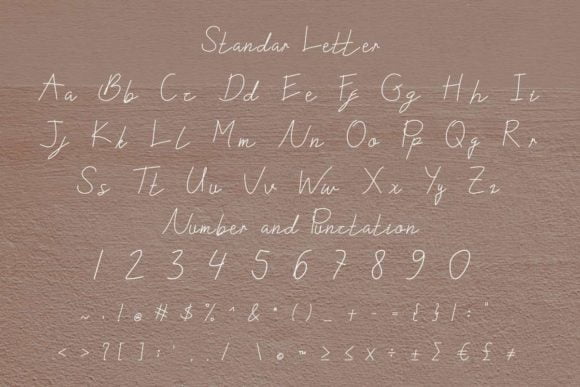 Standar Letter
Aa Bb Cc Dd Ee Ff Gg Hh Ii
Jj Kk Ll Mm Nn Oo Pp Qq Rr
Ss Tt Uu Vv Ww Xx Yy Zz
Number and Punctation
1 2 3 4 5 6 7 8 9 0
~ . ! @ # $ % ^ & * ( ) _ + - = { } | : "
< > ? [ ] ; ' , . / \ © ™ ≥ ≤ × ÷ ± Σ € £ ≠